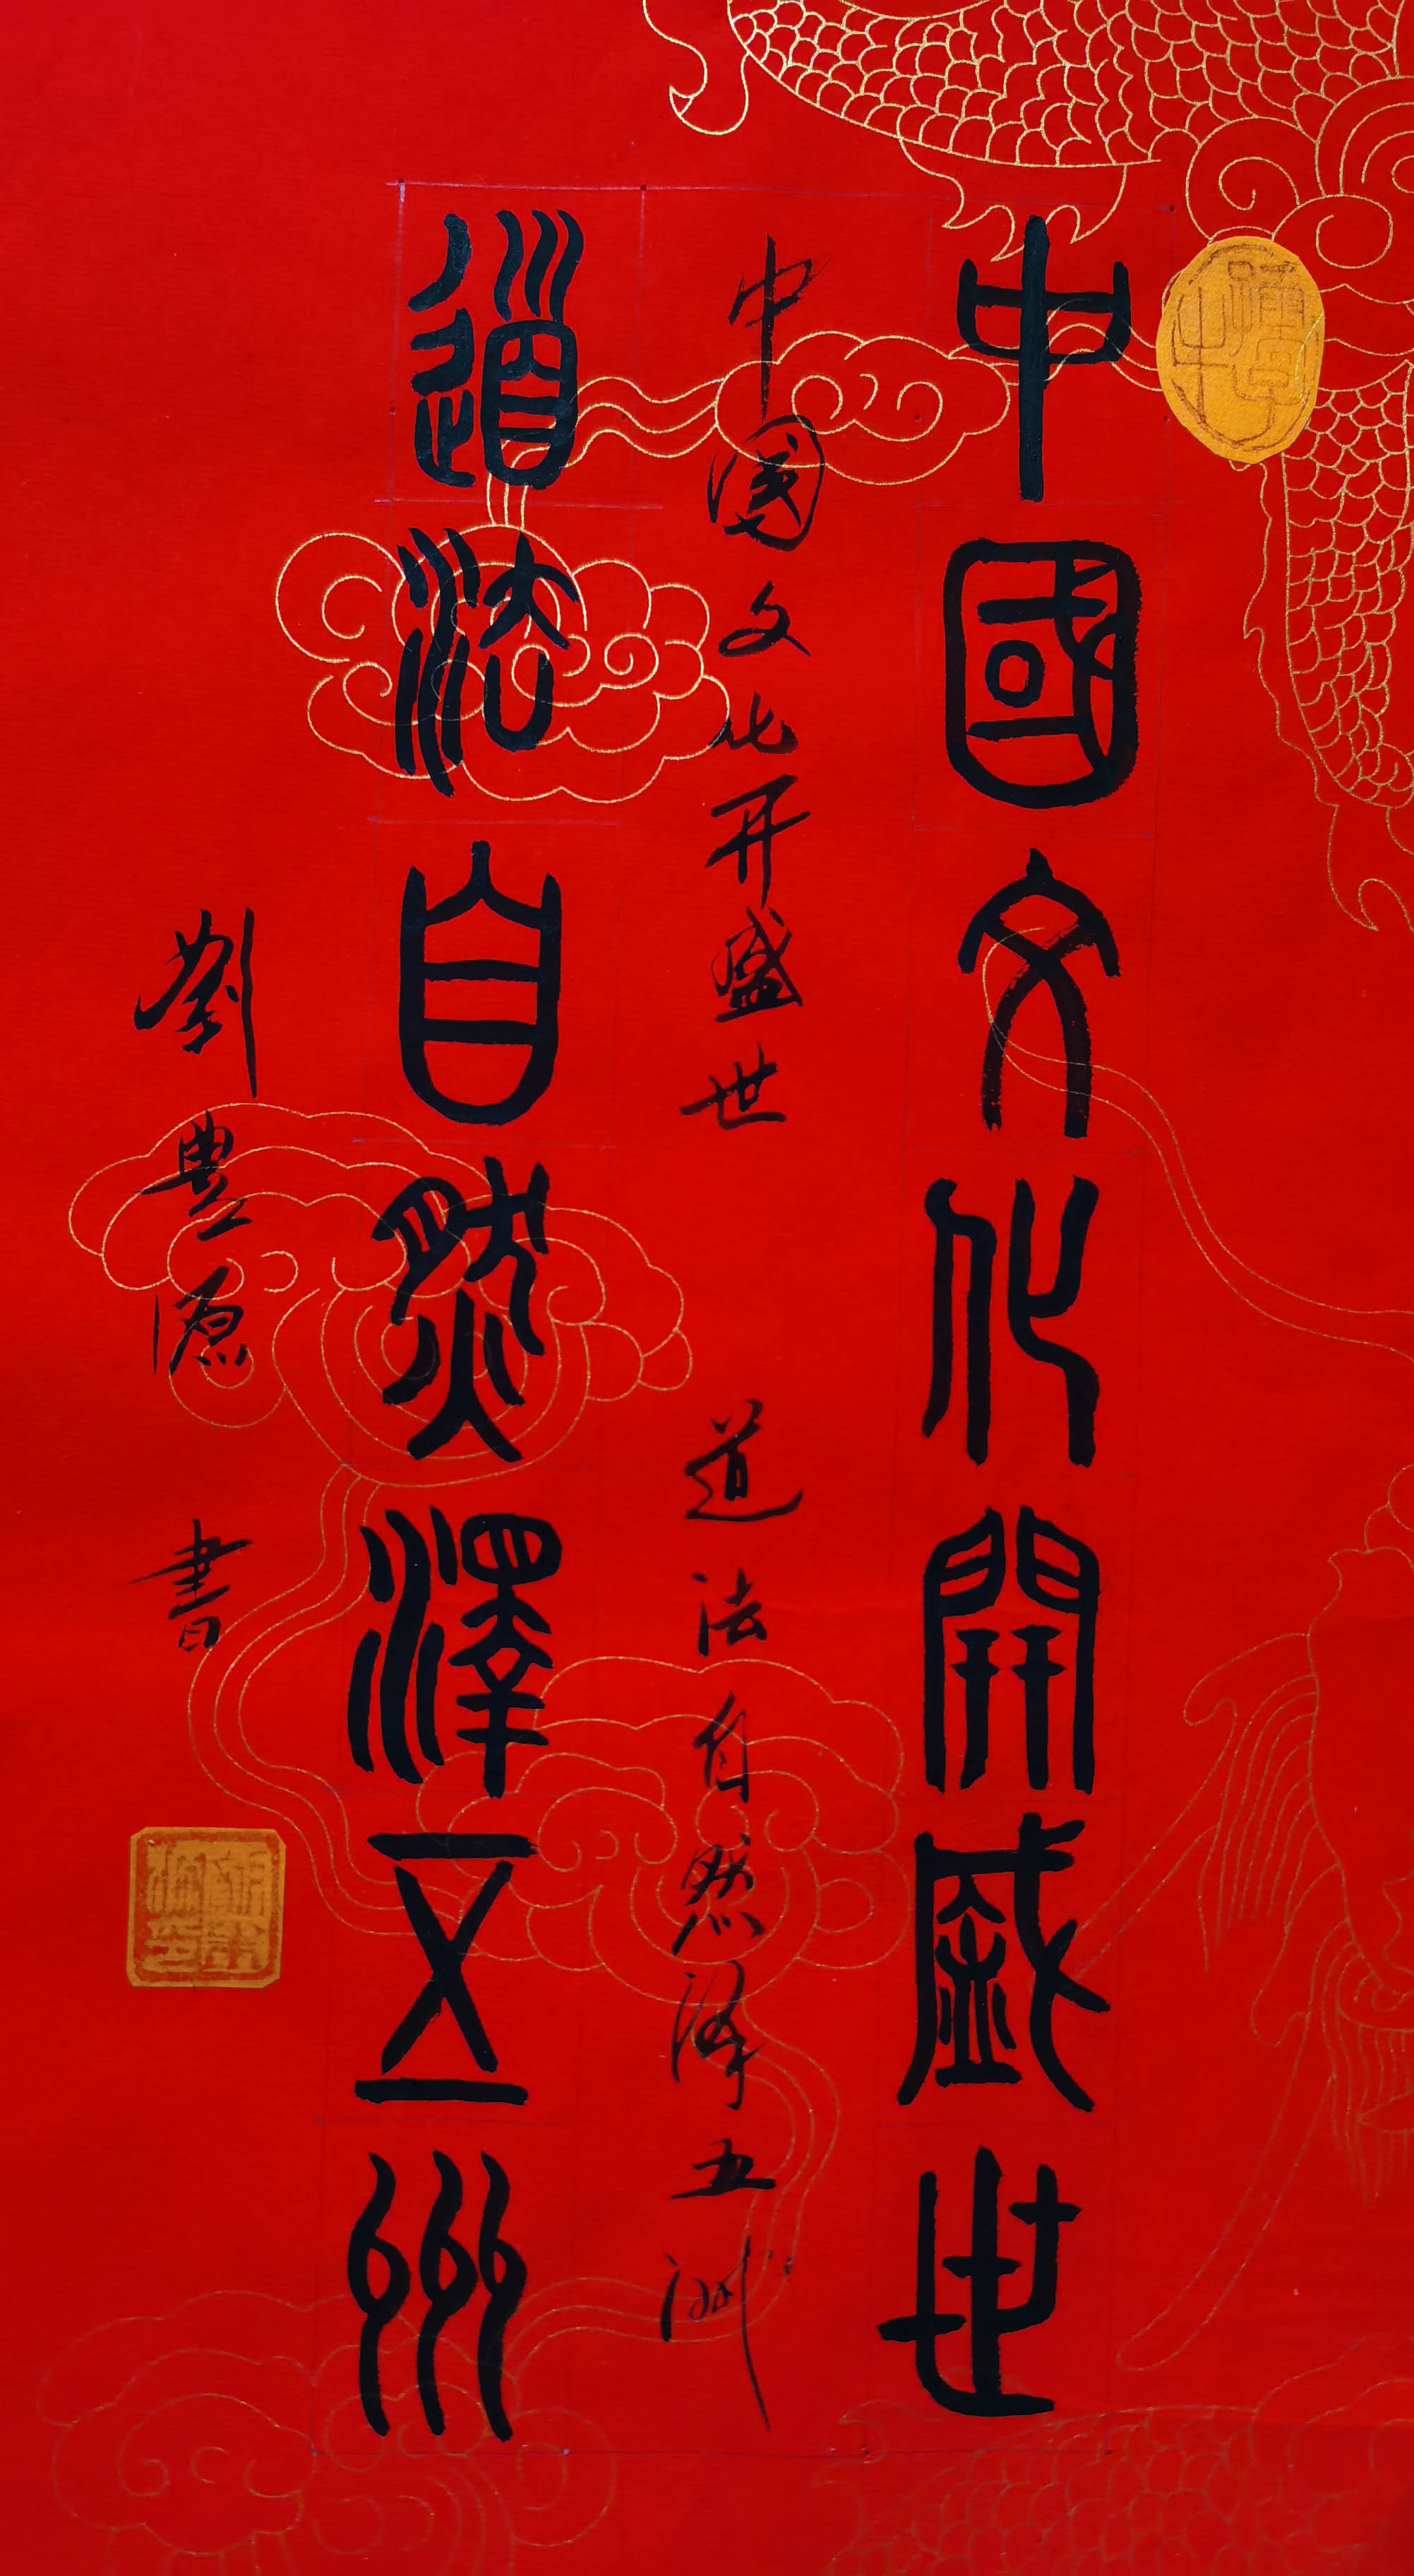 中國文化開盛世
中國文化开盛世 道法自然泽五洲
道法自然澤五州
劉豊源 書